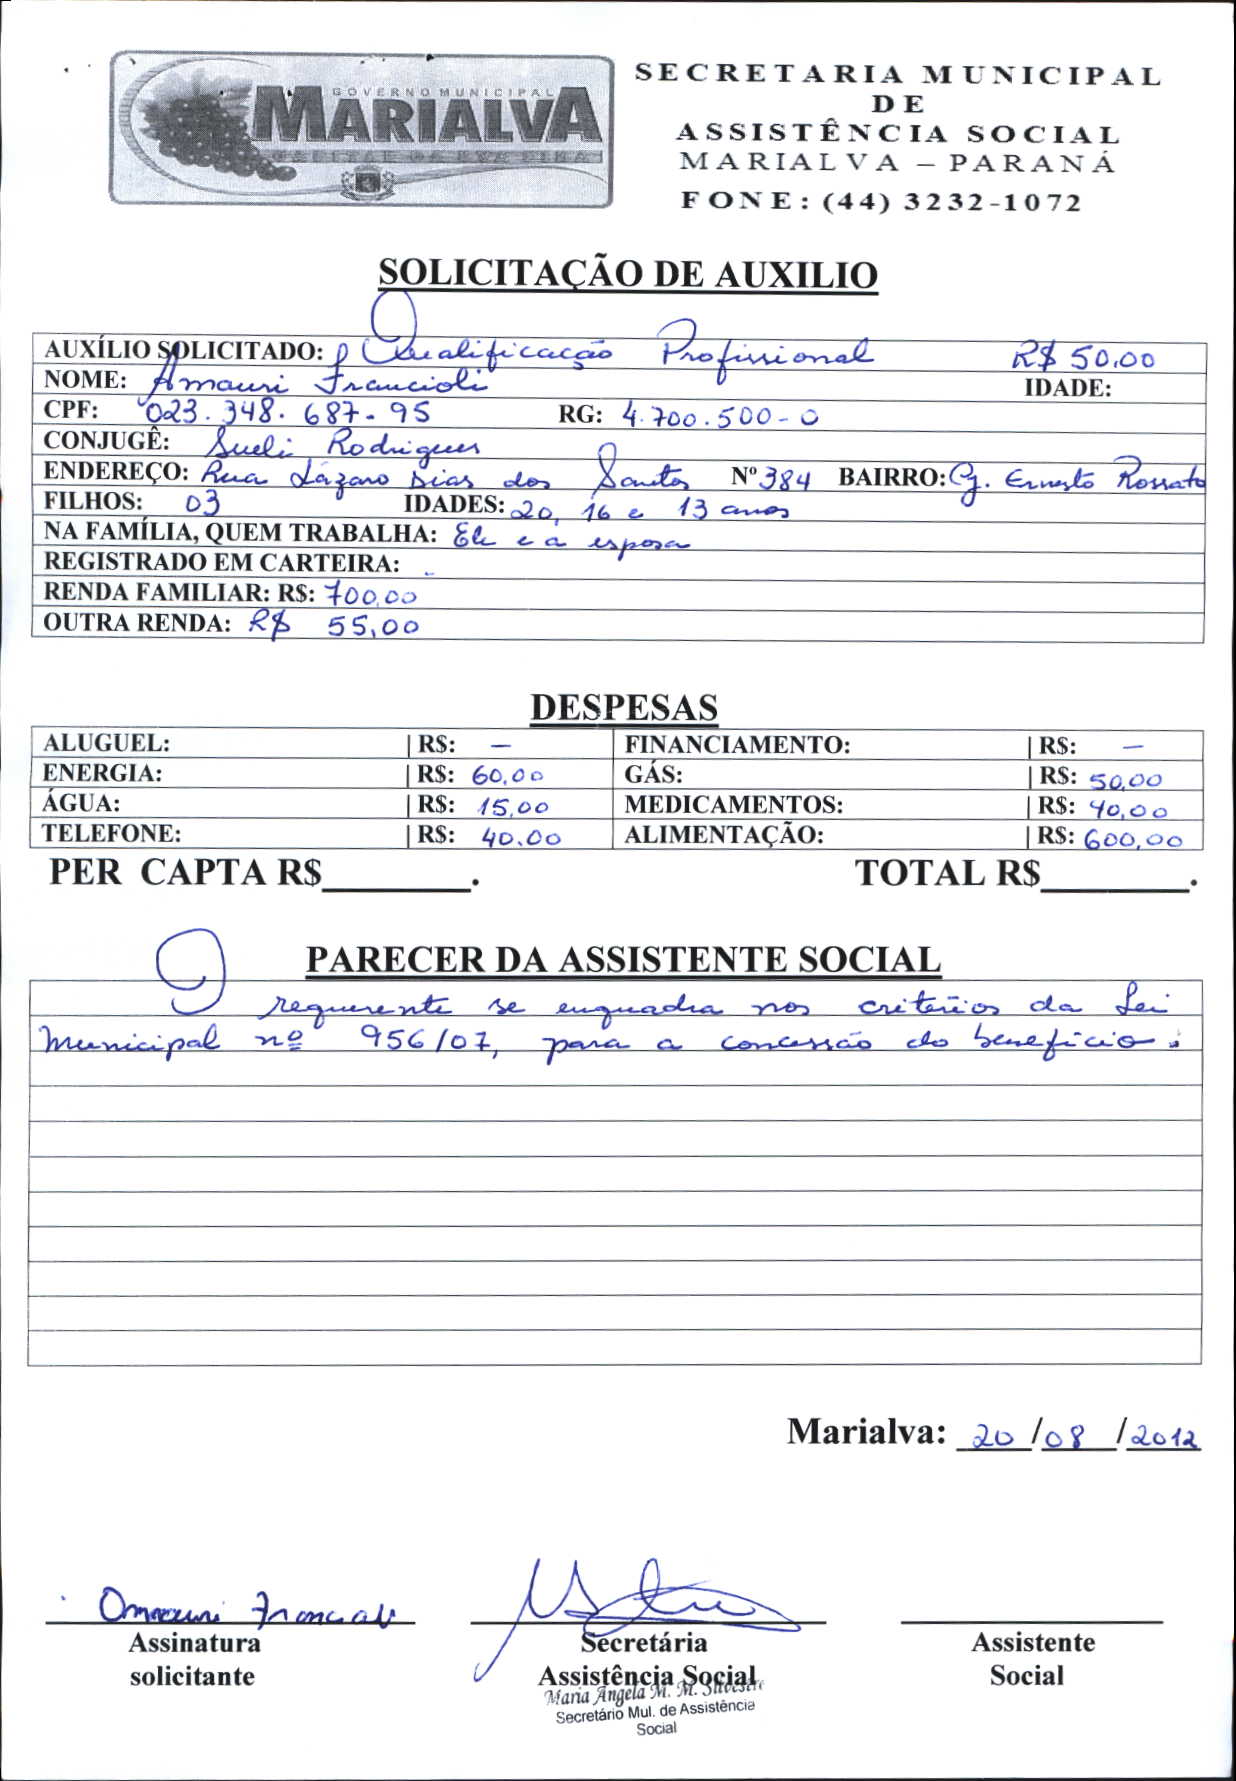 GOVERNO MUNICIPAL
MARIALVA
CAPITAL DA UVA FINA
SECRETARIA MUNICIPAL
DE
ASSISTÊNCIA SOCIAL
MARIALVA – PARANÁ
FONE: (44) 3232-1072
SOLICITAÇÃO DE AUXILIO
AUXÍLIO SOLICITADO: Qualificação Profissional R$ 50,00
NOME: Amauri Francioli IDADE:
CPF: 023.348.687-95 RG: 4.700.500-0
CONJUGÊ: Sueli Rodrigues
ENDEREÇO: Rua Lázaro Dias dos Santos Nº 384 BAIRRO: Cj. Ernesto Rossato
FILHOS: 03 IDADES: 20, 16 e 13 anos
NA FAMÍLIA, QUEM TRABALHA: Ele e a esposa
REGISTRADO EM CARTEIRA: -
RENDA FAMILIAR: R$: 700,00
OUTRA RENDA: R$ 55,00
DESPESAS
ALUGUEL: | R$: — FINANCIAMENTO: | R$: —
ENERGIA: | R$: 60,00 GÁS: | R$: 50,00
ÁGUA: | R$: 15,00 MEDICAMENTOS: | R$: 40,00
TELEFONE: | R$: 40,00 ALIMENTAÇÃO: | R$: 600,00
PER CAPTA R$________. TOTAL R$________.
PARECER DA ASSISTENTE SOCIAL
O requerente se enquadra nos critérios da Lei
Municipal nº 956/07, para a concessão do benefício.
Marialva: 20/08/2012
Amauri Francioli
Assinatura Secretária Assistente
solicitante Assistência Social Social
Maria Ângela M. M. Silvestre
Secretário Mul. de Assistência
Social